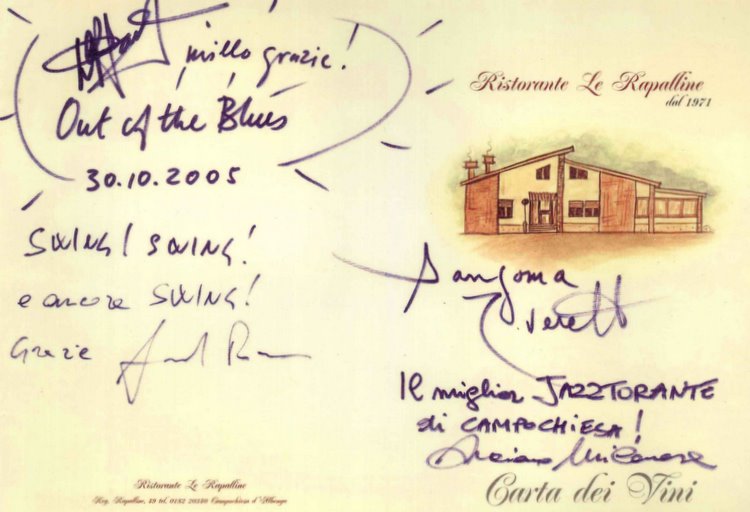 mille grazie!
Out of the Blues
30.10.2005
SWING! SWING!
e ancora SWING!
Grazie
Ristorante Le Rapalline
Reg. Rapalline, 19 tel. 0182 20180 Campochiesa d'Albenga
Ristorante Le Rapalline
dal 1971
Sangoma
Everett
Il miglior JAZZTORANTE
di CAMPOCHIESA!
Luciano Milanese
Carta dei Vini